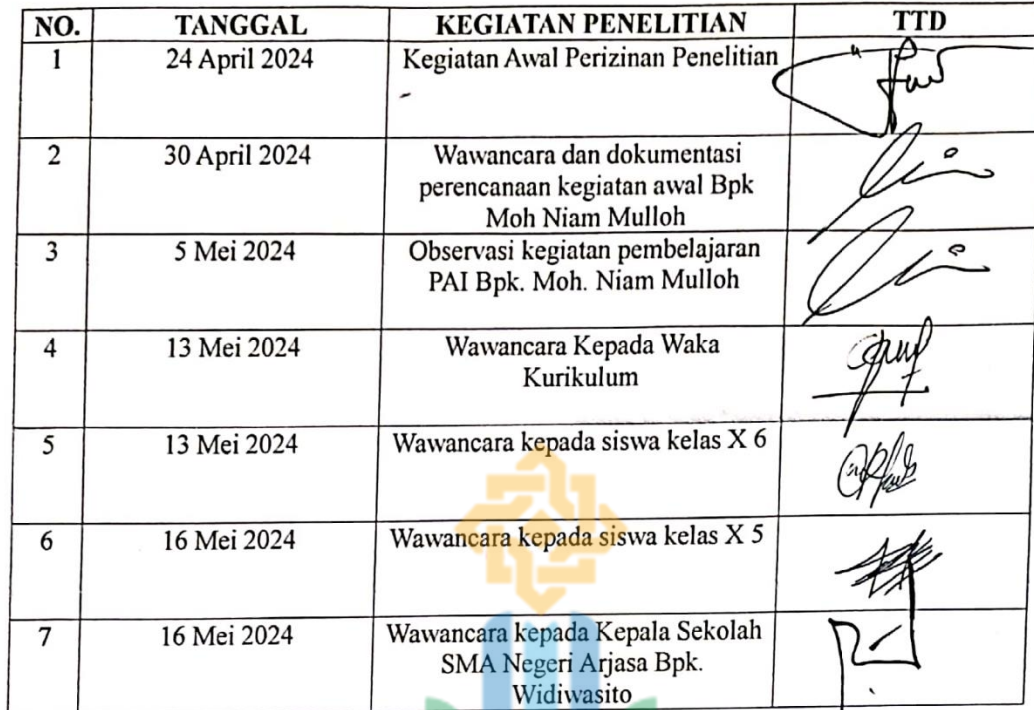 NO. TANGGAL KEGIATAN PENELITIAN TTD
1 24 April 2024 Kegiatan Awal Perizinan Penelitian
2 30 April 2024 Wawancara dan dokumentasi
perencanaan kegiatan awal Bpk
Moh Niam Mulloh
3 5 Mei 2024 Observasi kegiatan pembelajaran
PAI Bpk. Moh. Niam Mulloh
4 13 Mei 2024 Wawancara Kepada Waka
Kurikulum
5 13 Mei 2024 Wawancara kepada siswa kelas X 6
6 16 Mei 2024 Wawancara kepada siswa kelas X 5
7 16 Mei 2024 Wawancara kepada Kepala Sekolah
SMA Negeri Arjasa Bpk.
Widiwasito